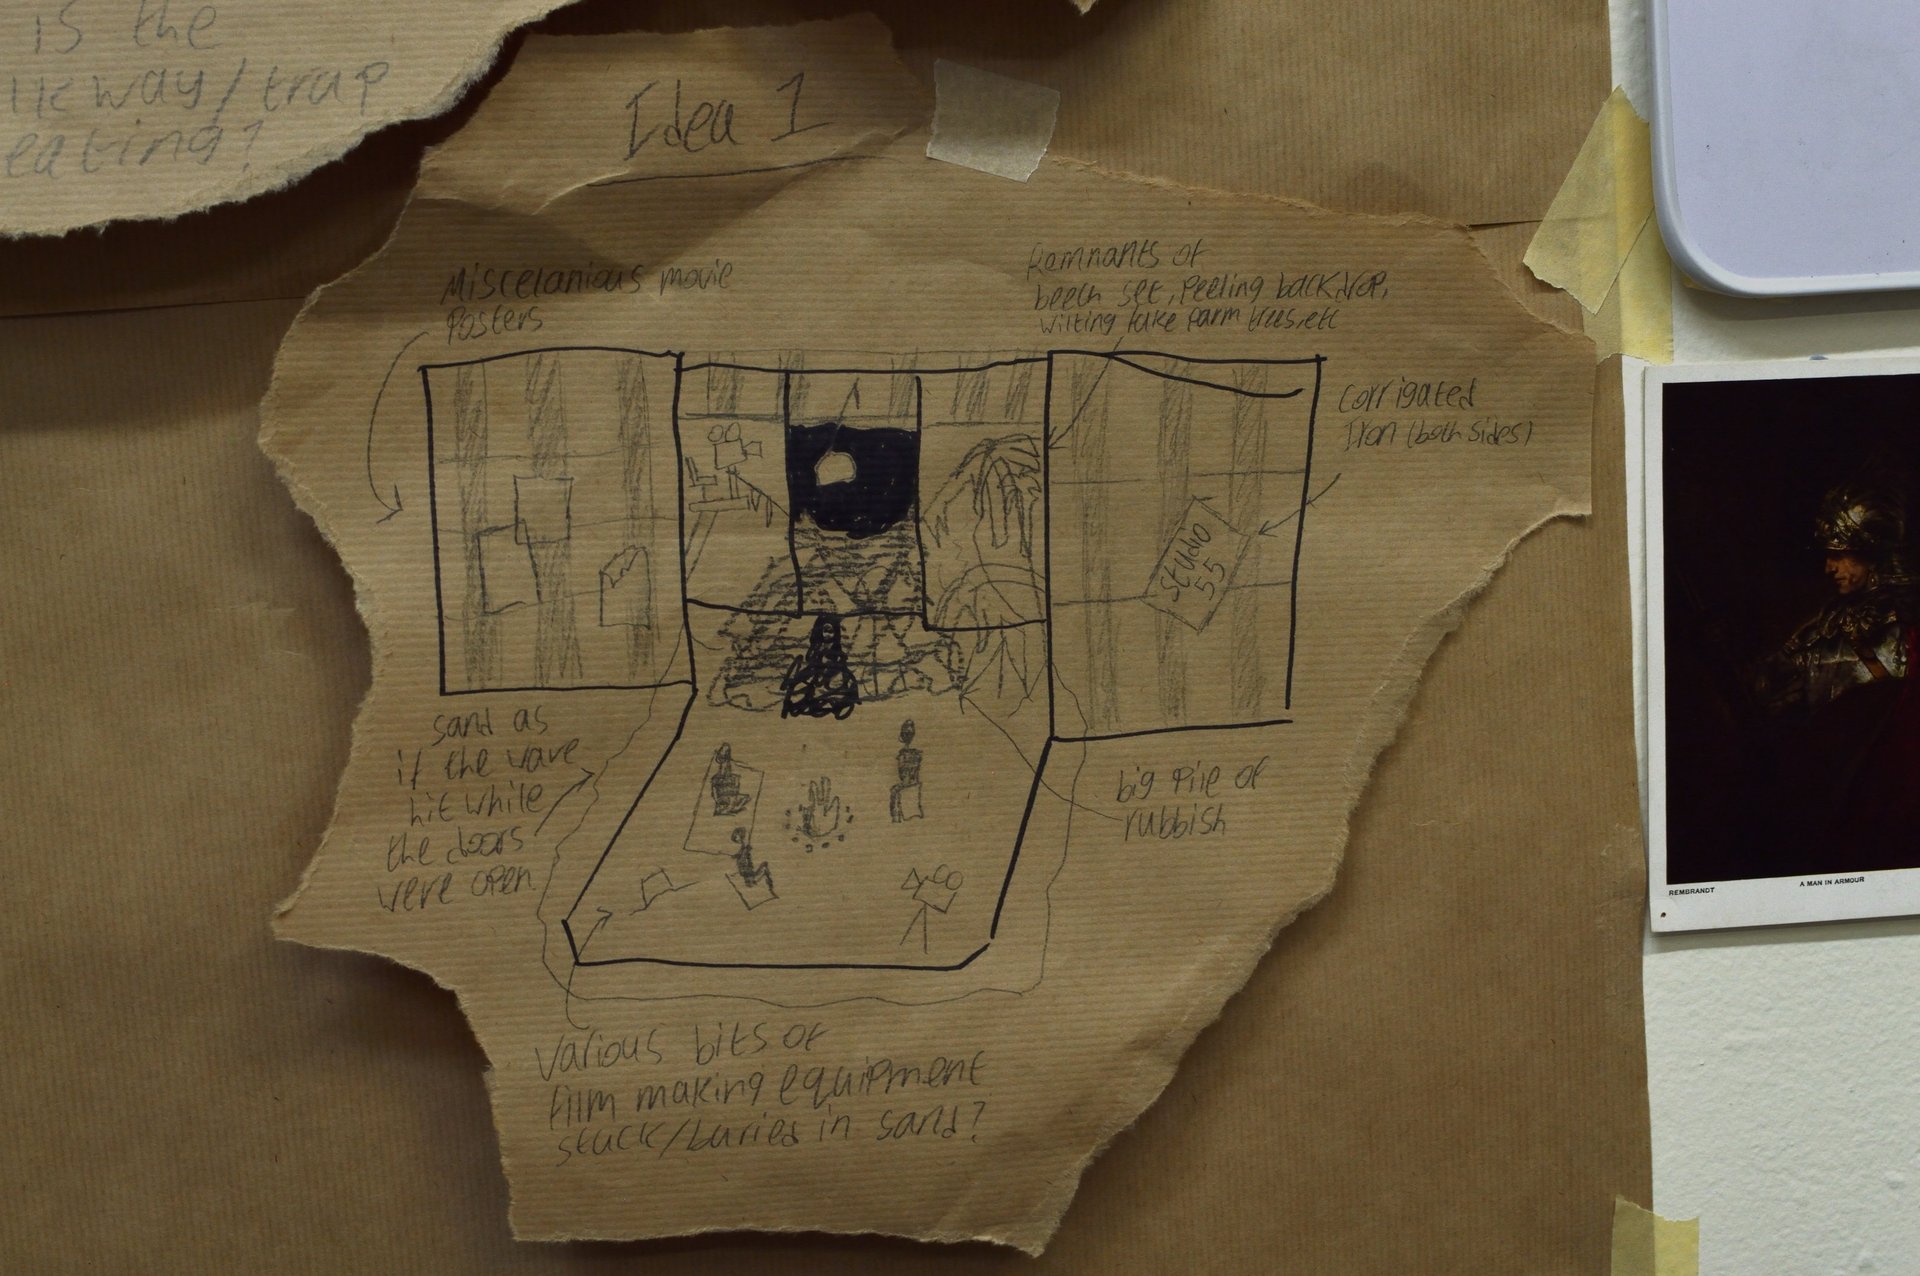 is the
lkway/trap
eating?
Idea 1
Miscelanious movie
posters
Remnants of
beech set, Peeling backdrop,
wilting fake parm trees, etc
corrigated
Iron (both sides)
Studio
55
sand as
if the wave
hit while
the doors
were open
big pile of
rubbish
Various bits of
film making equipment
stuck/buried in sand?
REMBRANDT
A MAN IN ARMOUR